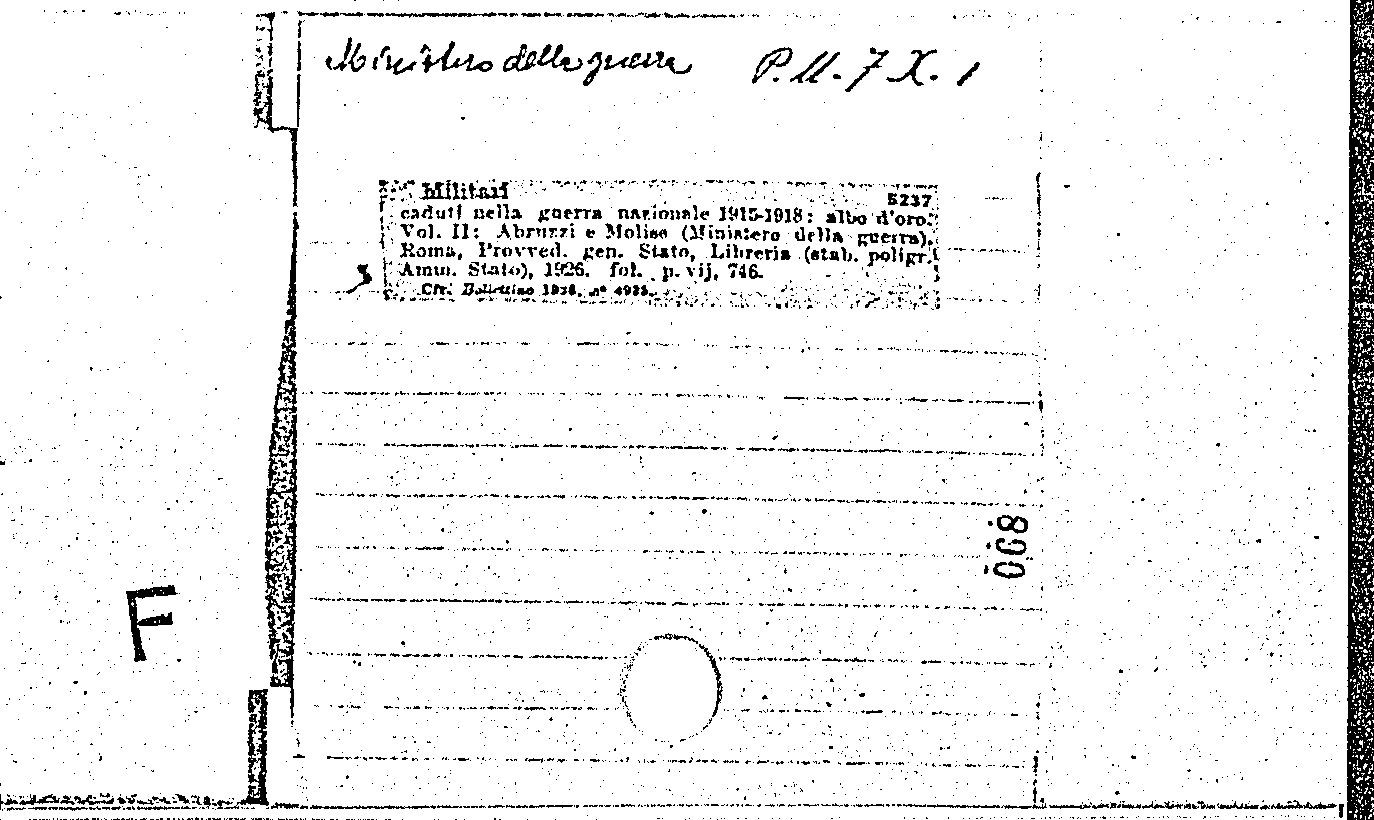 Ministero della guerra P.U. 7 X. 1
Militari 5237
caduti nella guerra nazionale 1915-1918: albo d'oro.
Vol. II: Abruzzi e Molise (Ministero della guerra).
Roma, Provved. gen. Stato, Libreria (stab. poligr.
Amm. Stato), 1926. fol. p. vij, 746.
Cfr. Bollettino 1926, nº
008
F